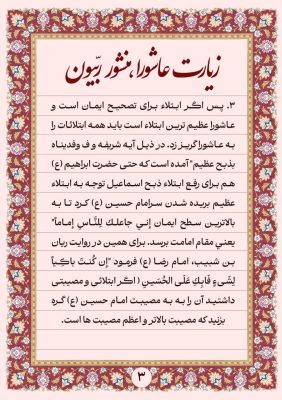 زیارت عاشورا، منشور ربّیون
۳. پس اگر ابتلاء برای تصحیح ایمان است و
عاشورا عظیم ترین ابتلاء است باید همه ابتلائات را
به عاشورا گریز زد. در ذیل آیه شریفه و ف وفدیناه
بذبح عظیم" آمده است که حتی حضرت ابراهیم (ع)
هم برای رفع ابتلاء ذبح اسماعیل توجه به ابتلاء
عظیم بریده شدن سرامام حسین (ع) کرد تا به
بالاترین سطح ایمان إني جاعلك لِلنَّاسِ إماماً"
یعني مقام امامت برسد. برای همین در روایت ریان
بن شبیب، امام رضا (ع) فرمود "إن كُنتَ باكِياً
لِشَيءٍ فَابكِ عَلَى الحُسَينِ ( اگر ابتلائی و مصیبتی
داشتید آن را به به مصیبت امام حسین (ع) گره
بزنید که مصیبت بالاتر و اعظم مصیبت ها است.
۳